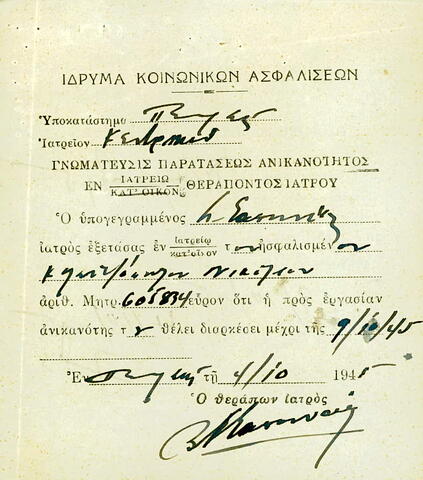 ΙΔΡΥΜΑ ΚΟΙΝΩΝΙΚΩΝ ΑΣΦΑΛΙΣΕΩΝ
Ὑποκατάστημα
Ἰατρεῖον
ΓΝΩΜΑΤΕΥΣΙΣ ΠΑΡΑΤΑΣΕΩΣ ΑΝΙΚΑΝΟΤΗΤΟΣ
ΕΝ ΙΑΤΡΕΙΩ ΚΑΤ' ΟΙΚΟΝ ΘΕΡΑΠΟΝΤΟΣ ΙΑΤΡΟΥ
Ὁ ὑπογεγραμμένος
ἰατρὸς ἐξετάσας ἐν ἰατρείῳ κατ' οἶκον τον ἠσφαλισμένον
ἀριθ. Μητρ. 605834 εὗρον ὅτι ἡ πρὸς ἐργασίαν
ἀνικανότης του θέλει διαρκέσει μέχρι τῆς 9/10/45
Ἐν τῇ 4/10 1945
Ὁ θεράπων ἰατρὸς